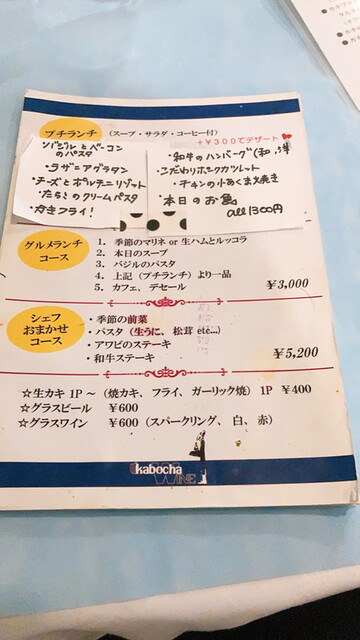 プチランチ (スープ・サラダ・コーヒー付)
+¥300でデザート
バジルとベーコン
のパスタ
・ラザニアグラタン
・チーズとポルチーニリゾット
・たらこのクリームパスタ
・カキフライ!
・和牛のハンバーグ(和, 洋
・こだわりポークカツレット
・チキンの小あくま焼き
・本日のお魚
all 1300円
グルメランチ
コース
1. 季節のマリネ or 生ハムとルッコラ
2. 本日のスープ
3. バジルのパスタ
4. 上記(プチランチ)より一品
5. カフェ、デセール
¥3,000
シェフ
おまかせ
コース
・季節の前菜
・パスタ(生うに、松茸 etc...)
・アワビのステーキ
・和牛ステーキ
¥5,200
☆生カキ 1P ~ (焼カキ、フライ、ガーリック焼) 1P ¥400
☆グラスビール ¥600
☆グラスワイン ¥600 (スパークリング、白、赤)
kabocha
WINE